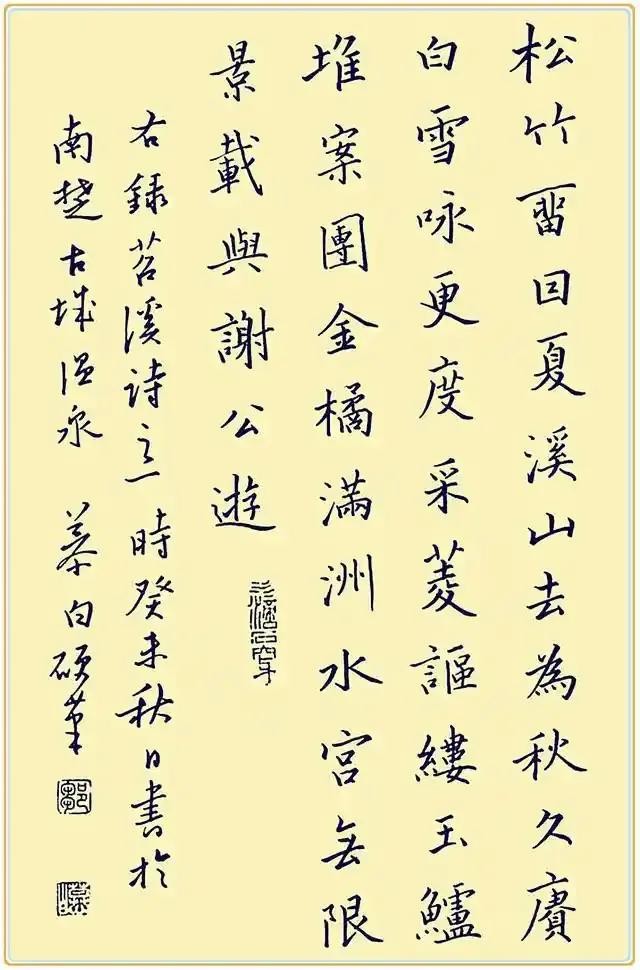 松竹畱因夏溪山去為秋久賡
白雪咏更度采菱謳縷玉鱸
堆案團金橘滿洲水宮無限
景載與謝公遊
右錄苕溪詩之一時癸未秋日書於
南楚古城溫泉慕白碩筆